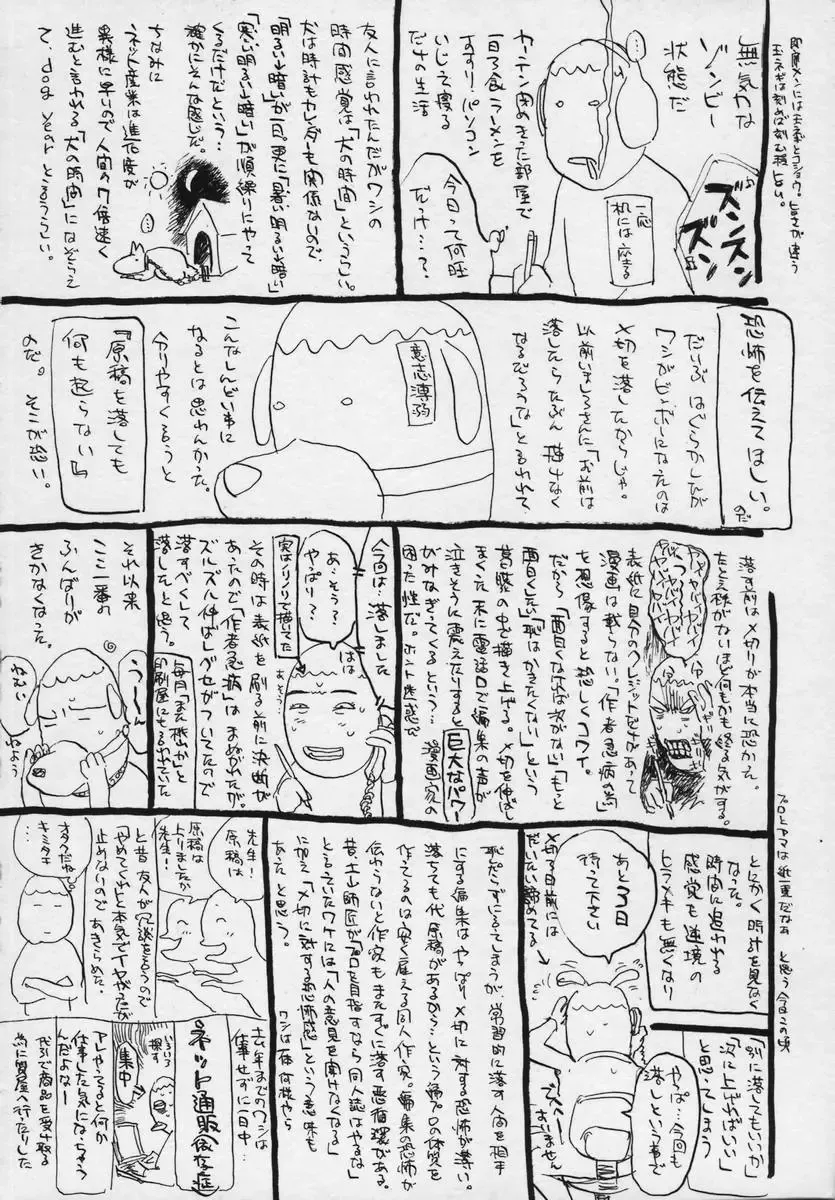 無気力な
ゾンビー
状態だ
カーテン閉めきった部屋で
一日3食ラーメンを
すすり!パソコン
いじって寝る
だけの生活
今日って何日
だっけ…?
一応
机には座る
ズンズン
ズン
友人に言われたんだがワシの
時間感覚は「犬の時間」というらしい。
犬は時計もカレンダーも関係ないので
「明るい→暗い」が一日。更に「暑い明るい→暗い」
「寒い明るい→暗い」が順繰りにやって
くるだけだという…
確かにそんな感じだ。
ちなみに
ネット産業は進化度が
異様に早いので人間の7倍速く
進むと言われる「犬の時間」になぞらえ
て、dog yearと言うらしい。
恐怖を伝えてほしい。
のだ
だいぶはぐらかしたが
ワシがビンボーになったのは
〆切を落したからじゃ。
以前ましろさんに「お前は
落したらたぶん描けなく
なるだろうな」と言われて
意志薄弱
こんなしんどい事に
なるとは思わんかった。
分りやすく言うと
『原稿を落しても
何も起らない』
のだ。そこが恐い。
落す前は〆切りが本当に恐かった。
たとえ株がないほど何もかも終る気がする。
表紙に自分のクレジットだけがあって
漫画は載らない「作者急病の為」
を想像すると恐しくコワイ。
だから「面白くなければ次がない」「もっと
面白くしたい」「恥はかきたくない」という
葛藤の中で描き上げる。〆切を伸ばし
まくった末に電話口で編集の声が
泣きそうに震えたりすると巨大なパワー
がみなぎってくるという…漫画家の
困った性だ。ホント迷惑で
今回は…落しました
はは
あ、そう?
やっぱり?
あ、そう…
実はノリノリで描いてた
その時は表紙を刷る前に決断が
あったので「作者急病」はまぬがれたが、
ズルズル伸ばしグセがついてたので
落すべくして
落したと思う。
毎月「まだ機かと
印刷屋にも言われていた
それ以来
ここ一番の
ふんばりが
きかなくなった。
う〜ん
ねむい
ねよう
とにかく時計を見なく
なった。
時間に追われる
感覚も逆境の
ヒラメキも無くなり
「別に落してもいいか」
「次に上げればいい」
と思ってしまう
やっぱ…今回も
落しという事で
すいません
あと3日
待って下さい
〆切3日前には
だいたい諦めてる
恥だらずにいってしまうが、常習的に落す人間を相手
にする編集はやっぱり〆切に対する恐怖が薄い。
落ちても代原稿があるから…という編プロの体質を
作ってるのは安く雇える同人作家。編集の恐怖が
伝わらないと作家もまたすぐに落す悪循環がある。
昔、土山師匠が「プロを目指すなら同人誌はやるな」
と言っていたワケには「人の意見を聞けなくなる」
に加え「〆切に対する恐怖感」という意味も
あったと思う。
ワシは一体何様やら
先生!
原稿は
原稿は
上りましたか
先生!
オタクだね
キミタチ
と昔友人が冗談を言うので
「やめてくれ」と本気でイヤがったが
止めないので あきらめた。
去年までのワシは
仕事せずに一日中…
ネット通販依存症
集中
アレやってると何か
仕事した気になっちゃう
んだよなー
代引で商品を受け取る
為に質屋へ行ったりした
プロとアマは紙一重だなぁ と思う今日この頃